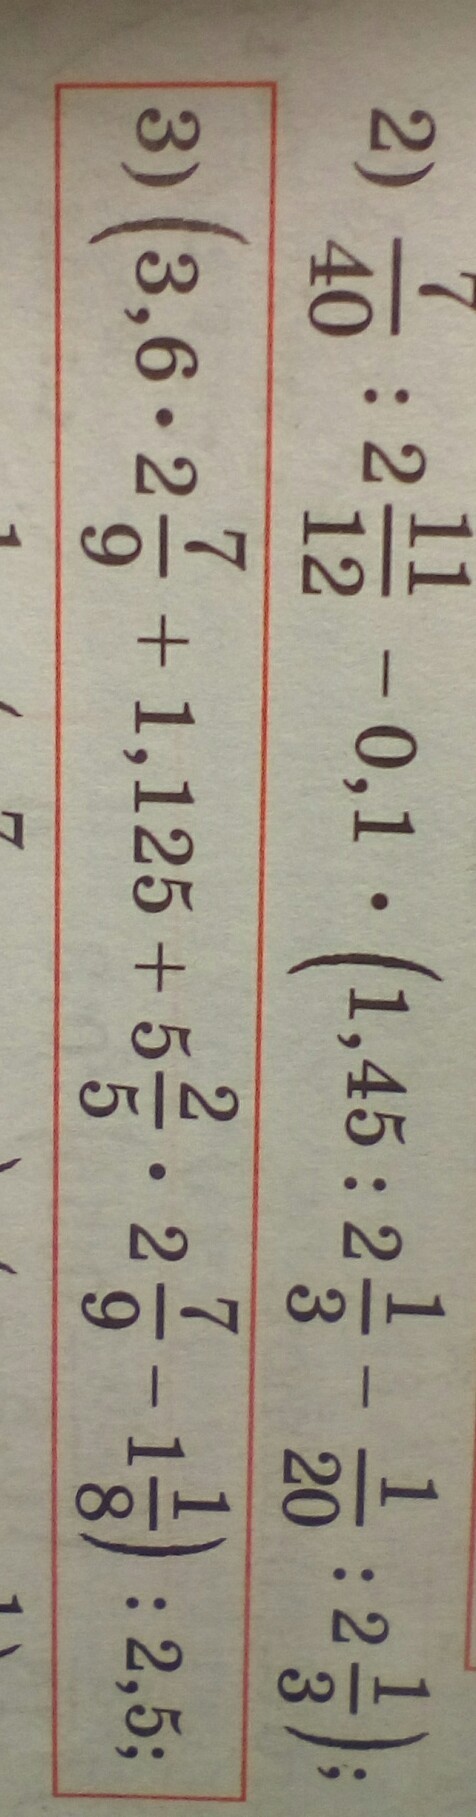 2) 7/40 : 2 11/12 − 0,1 · (1,45 : 2 1/3 − 1/20 : 2 1/3);
3) (3,6 · 2 7/9 + 1,125 + 5 2/5 · 2 7/9 − 1 1/8) : 2,5;